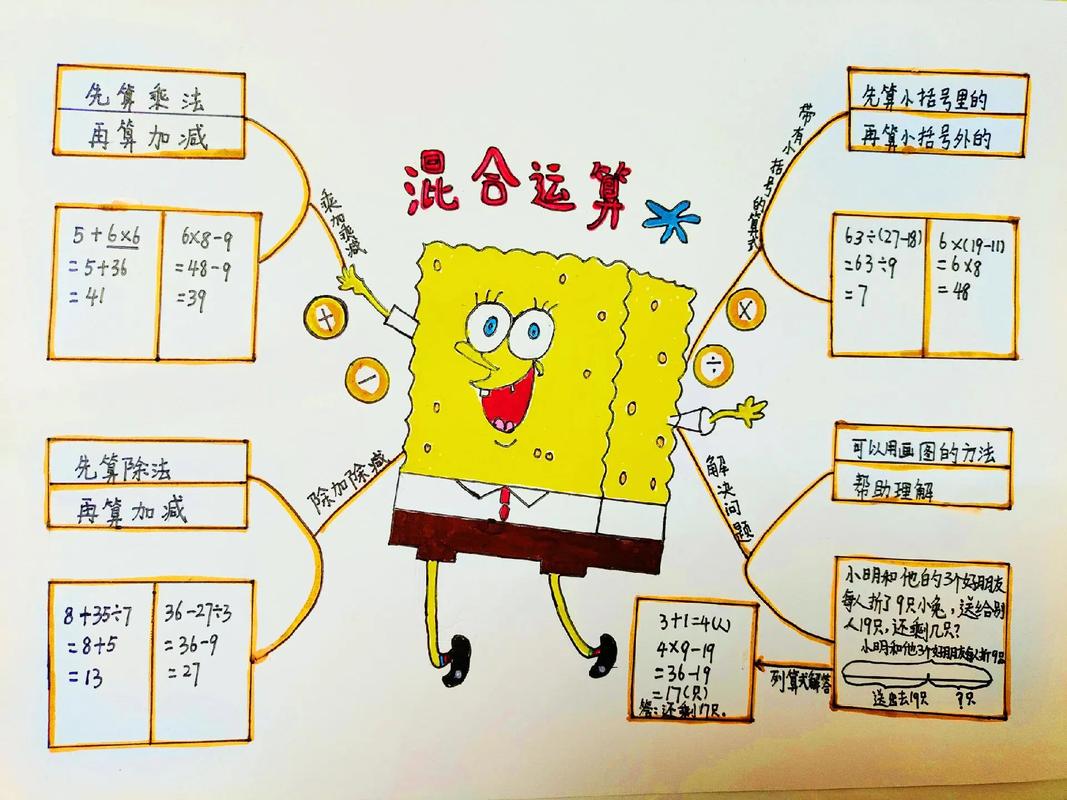 混合运算
乘加乘减
先算乘法
再算加减
5+6×6
=5+36
=41
6×8-9
=48-9
=39
+
-
除加除减
先算除法
再算加减
8+35÷7
=8+5
=13
36-27÷3
=36-9
=27
带有小括号的算式
先算小括号里的
再算小括号外的
63÷(27-18)
=63÷9
=7
6×(19-11)
=6×8
=48
×
÷
解决问题
可以用画图的方法
帮助理解
小明和他白的3个好朋友
每人折了9只小兔,送给别
人19只,还剩几只?
小明和他3个好朋友每人折9只
送出去19只 ?只
列算式解答
3+1=4(人)
4×9-19
=36-19
=17(只)
答:还剩17只.